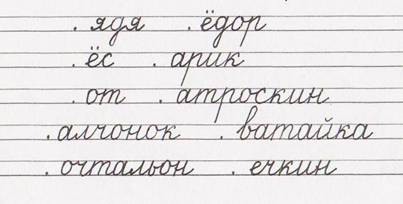 . ядя . ёдор
. ёс . арик
. от . атроскин
. алчонок . ватайка
. очтальон . ечкин